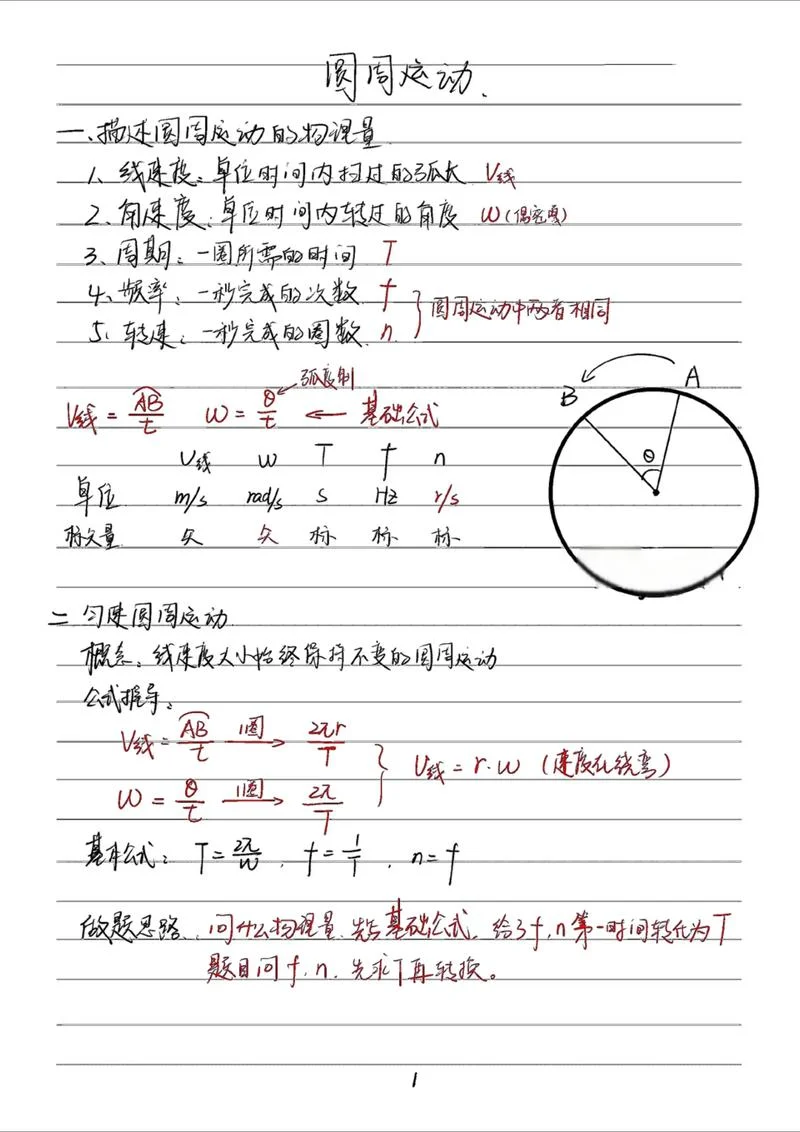 圆周运动.
一、描述圆周运动的物理量
1、线速度:单位时间内扫过的弧长 V线
2、角速度:单位时间内转过的角度 ω(偶密嘎)
3、周期:一圈所需的时间 T
4、频率:一秒完成的次数 f
5、转速:一秒完成的圈数 n
圆周运动中两者相同
弧度制
V线 = AB/t ω = θ/t ← 基础公式
V线 ω T f n
单位 m/s rad/s s Hz r/s
标矢量 矢 矢 标 标 标
B A
θ
二 匀速圆周运动
概念:线速度大小始终保持不变的圆周运动
公式推导:
V线 = AB/t 1圈→ 2πr/T
ω = θ/t 1圈→ 2π/T
V线 = r·ω (速度在绕弯)
基本公式: T = 2π/ω , f = 1/T , n = f
做题思路、问什么物理量、先写基础公式、给了 f、n 第一时间转化为 T
题目问 f、n、先求 T 再转换。
1